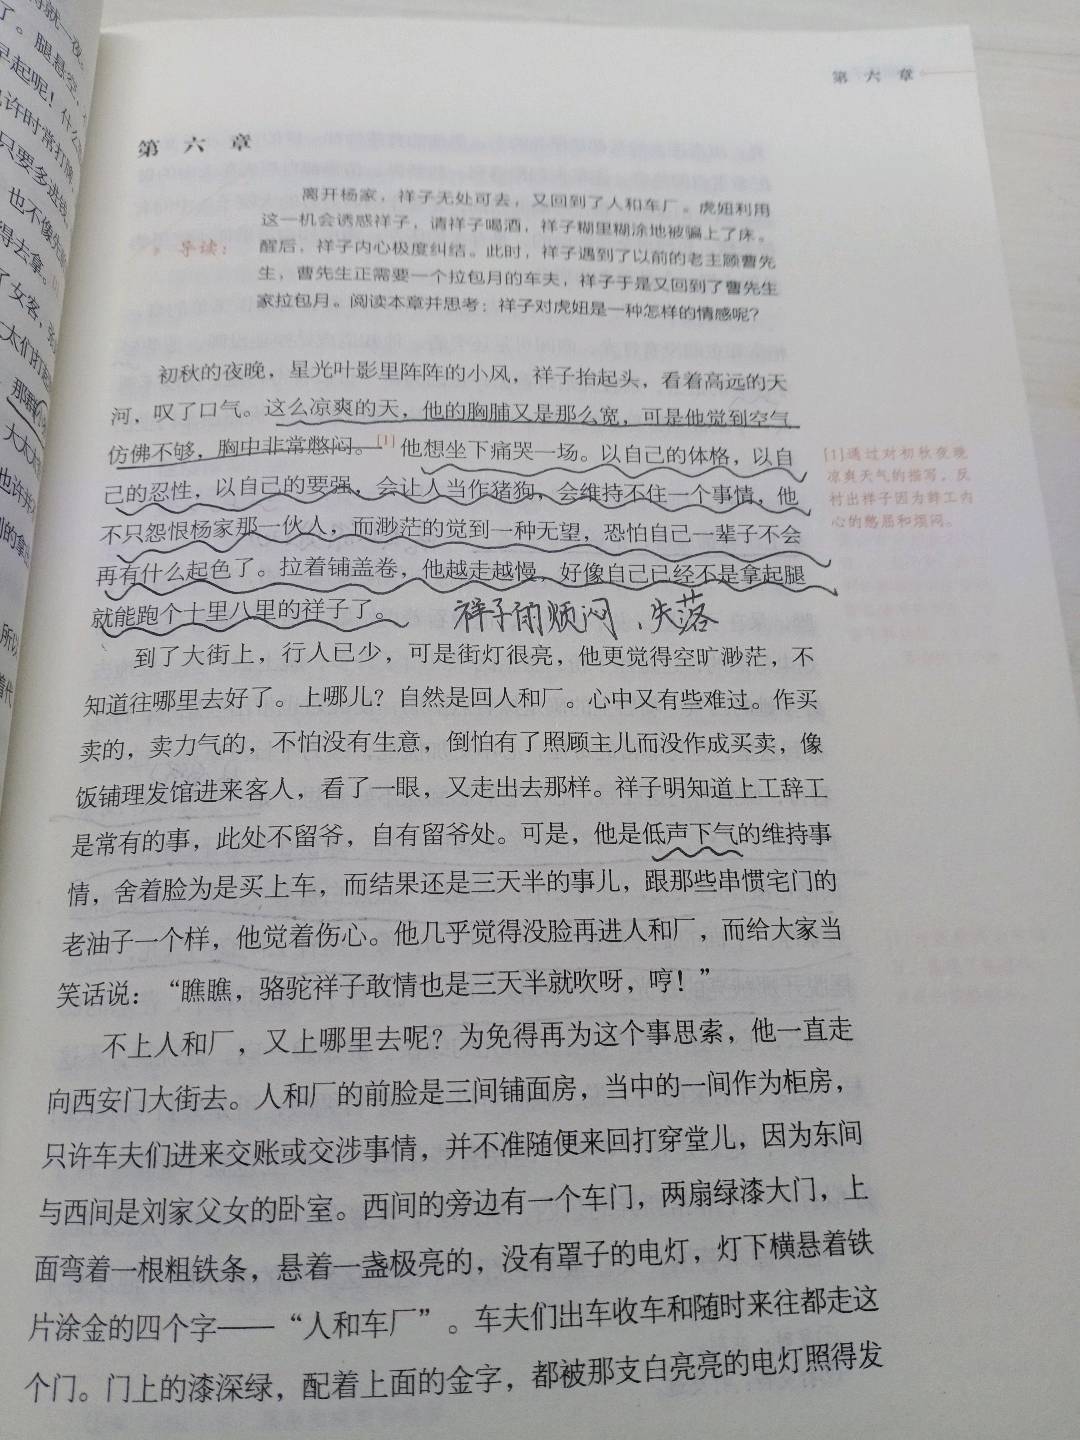 第六章
第六章
离开杨家，祥子无处可去，又回到了人和车厂。虎妞利用
这一机会诱惑祥子，请祥子喝酒，祥子糊里糊涂地被骗上了床。
导读：
醒后，祥子内心极度纠结。此时，祥子遇到了以前的老主顾曹先
生，曹先生正需要一个拉包月的车夫，祥子于是又回到了曹先生
家拉包月。阅读本章并思考：祥子对虎妞是一种怎样的情感呢？
初秋的夜晚，星光叶影里阵阵的小风，祥子抬起头，看着高远的天
河，叹了口气。这么凉爽的天，他的胸脯又是那么宽，可是他觉到空气
仿佛不够，胸中非常憋闷。[1]他想坐下痛哭一场。以自己的体格，以自
己的忍性，以自己的要强，会让人当作猪狗，会维持不住一个事情，他
不只怨恨杨家那一伙人，而渺茫的觉到一种无望，恐怕自己一辈子不会
再有什么起色了。拉着铺盖卷，他越走越慢，好像自己已经不是拿起腿
就能跑个十里八里的祥子了。
祥子的烦闷、失落
[1]通过对初秋夜晚
凉爽天气的描写，反
衬出祥子因为辞工内
心的憋屈和烦闷。
到了大街上，行人已少，可是街灯很亮，他更觉得空旷渺茫，不
知道往哪里去好了。上哪儿？自然是回人和厂。心中又有些难过。作买
卖的，卖力气的，不怕没有生意，倒怕有了照顾主儿而没作成买卖，像
饭铺理发馆进来客人，看了一眼，又走出去那样。祥子明知道上工辞工
是常有的事，此处不留爷，自有留爷处。可是，他是低声下气的维持事
情，舍着脸为是买上车，而结果还是三天半的事儿，跟那些串惯宅门的
老油子一个样，他觉着伤心。他几乎觉得没脸再进人和厂，而给大家当
笑话说：“瞧瞧，骆驼祥子敢情也是三天半就吹呀，哼！”
不上人和厂，又上哪里去呢？为免得再为这个事思索，他一直走
向西安门大街去。人和厂的前脸是三间铺面房，当中的一间作为柜房，
只许车夫们进来交账或交涉事情，并不准随便来回打穿堂儿，因为东间
与西间是刘家父女的卧室。西间的旁边有一个车门，两扇绿漆大门，上
面弯着一根粗铁条，悬着一盏极亮的，没有罩子的电灯，灯下横悬着铁
片涂金的四个字——“人和车厂”。车夫们出车收车和随时来往都走这
个门。门上的漆深绿，配着上面的金字，都被那支白亮亮的电灯照得发